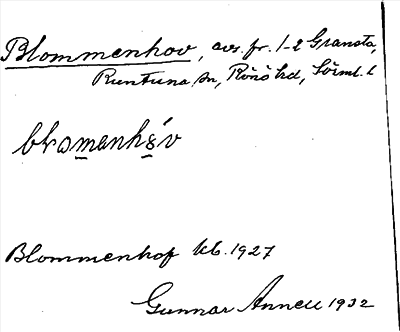 Blommenhov, avs. fr. 1-2 Gransta,
Runtuna sn, Rönö hd, Sörml. l
blomenhóv
Blommenhof kb. 1927
Gunnar Annell 1932